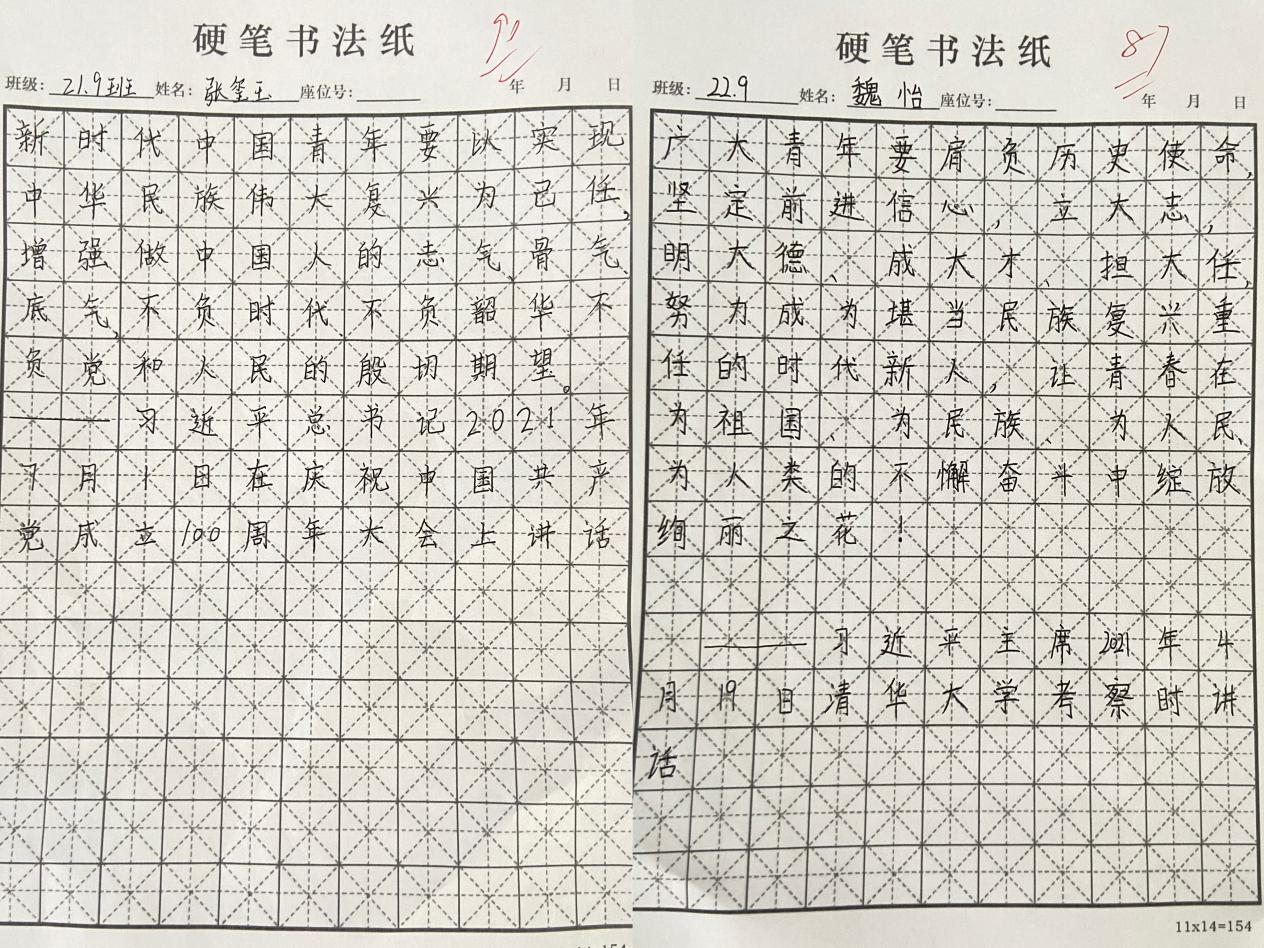 硬笔书法纸
91
班级：21.9班班 姓名：张玺玉 座位号： 年 月 日
新时代中国青年要以实现
中华民族伟大复兴为己任，
增强做中国人的志气、骨气
底气，不负时代不负韶华不
负党和人民的殷切期望。
——习近平总书记2021年
7月1日在庆祝中国共产
党成立100周年大会上讲话
硬笔书法纸
87
班级：22.9 姓名：魏怡 座位号： 年 月 日
广大青年要肩负历史使命，
坚定前进信心，立大志，
明大德、成大才、担大任，
努为成为堪当民族复兴重
任的时代新人，让青春在
为祖国、为民族、为人民、
为人类的不懈奋斗中绽放
绚丽之花！
——习近平主席2021年4
月19日清华大学考察时讲
话
11x14=154